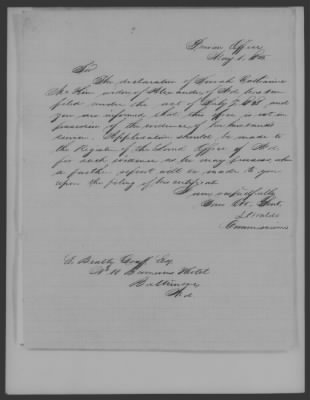 Pension Office,
May 1, 185
Sir
The declaration of Sarah Catharine
Mc Kim widow of Alexander of Md has been
filed under the act of July 7, 1838, and
you are informed that this office is not in
possession of the evidence of her husband's
service. Application should be made to
the Register of the Land Office of Md.
for such evidence as he may possess when
a further report will be made to you
upon the filing of his certificate.
I am respectfully
Your Ob. Servt.
Commissioner
S. Beatty Graff Esq.
No 10 Barnums Hotel
Baltimore
Md